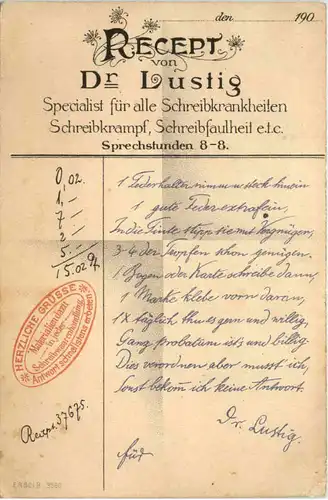 den 190
Recept
von
Dr Lustig
Specialist für alle Schreibkrankheiten
Schreibkrampf, Schreibfaulheit e.t.c.
Sprechstunden 8-8.
0,02.
1,-
7-
2-
5.-
15.02 M
1 Federhalter nimm u. steck hinein
1 gute Feder extrafein,
In die Tinte stipp sie mit Vergnügen,
3-4 der Tropfen schon genügen.
1 Bogen oder Karte schreibe dann,
1 Marke klebe vorn daran,
1x täglich thu es gern und willig,
Ganz probatum ist's und billig
Dies verordnen aber musst ich,
Sonst bekom ich keine Antwort.
Dr. Lustig.
für
HERZLICHE GRÜSSE
Materialien dazu
in jeder
Schreibwarenhandlung
Antwort schnellstens erbeten
Recept. 37675.